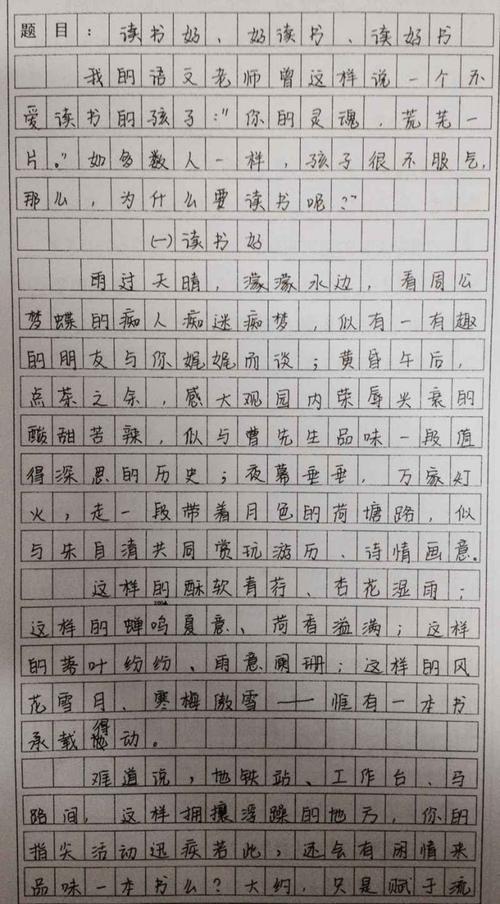 题目：读书好、好读书、读好书
我的语文老师曾这样说一个不
爱读书的孩子："你的灵魂，荒芜一
片。"如多数人一样，孩子很不服气，
那么，为什么要读书呢？"
（一）读书好
雨过天晴，濛濛水边，看周公
梦蝶的痴人痴迷痴梦，似有一有趣
的朋友与你娓娓而谈；黄昏午后，
点茶之余，感大观园内荣辱兴衰的
酸甜苦辣，似与曹先生品味一段值
得深思的历史；夜幕垂垂，万家灯
火，走一段带着月色的荷塘路，似
与朱自清共同赏玩游历、诗情画意。
这样的酥软青荇、杏花湿雨；
这样的蝉鸣夏意、荷香溢满；这样
的落叶纷纷、雨意阑珊；这样的风
花雪月、寒梅傲雪——惟有一本书
承载得动。
难道说，地铁站、工作台、马
路间，这样拥攘浮躁的地方，你的
指尖活动迅疾若此，还会有闲情来
品味一本书么？大约，只是赋于流